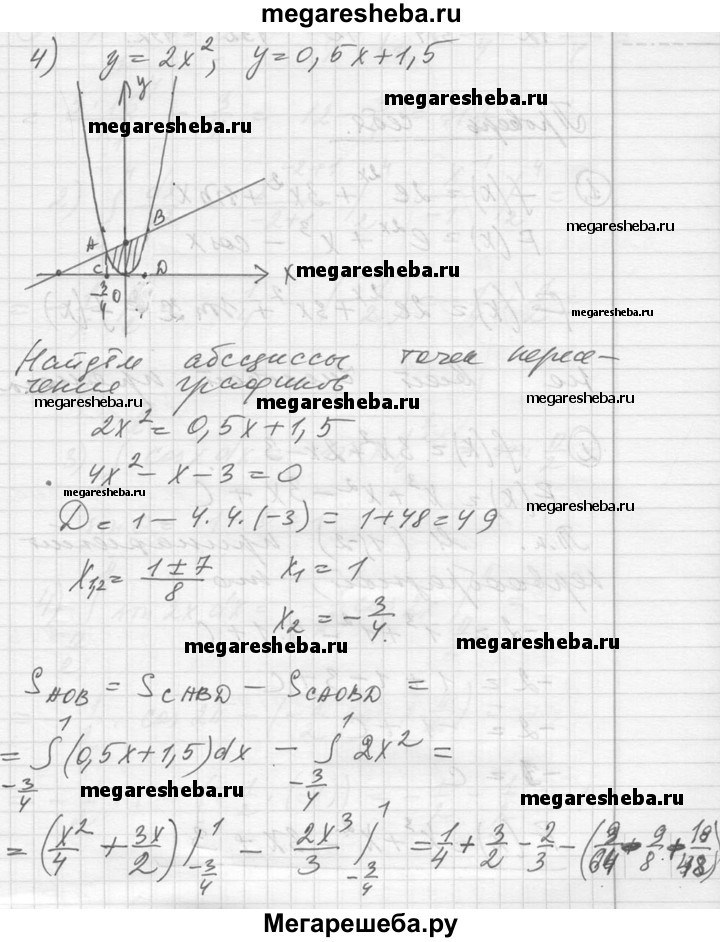 megaresheba.ru
4) y = 2x², y = 0,5x + 1,5
megaresheba.ru
y
megaresheba.ru
megaresheba.ru
A B
C D x
megaresheba.ru
-3/4 0 1
megaresheba.ru
Найдём абсциссы точек пересе-
чения графиков
megaresheba.ru
megaresheba.ru
megaresheba.ru
2x² = 0,5x + 1,5
4x² - x - 3 = 0
megaresheba.ru
megaresheba.ru
D = 1 - 4·4·(-3) = 1 + 48 = 49
x₁,₂ = (1 ± 7)/8 x₁ = 1
x₂ = -3/4
megaresheba.ru
megaresheba.ru
S_AOB = S_CABD - S_CAOBD =
= ∫_{-3/4}^{1} (0,5x + 1,5)dx - ∫_{-3/4}^{1} 2x² =
megaresheba.ru
megaresheba.ru
= (x²/4 + 3x/2) |_{-3/4}^{1} - 2x³/3 |_{-3/4}^{1} = 1/4 + 3/2 - 2/3 - (9/64
Мегарешеба.ру